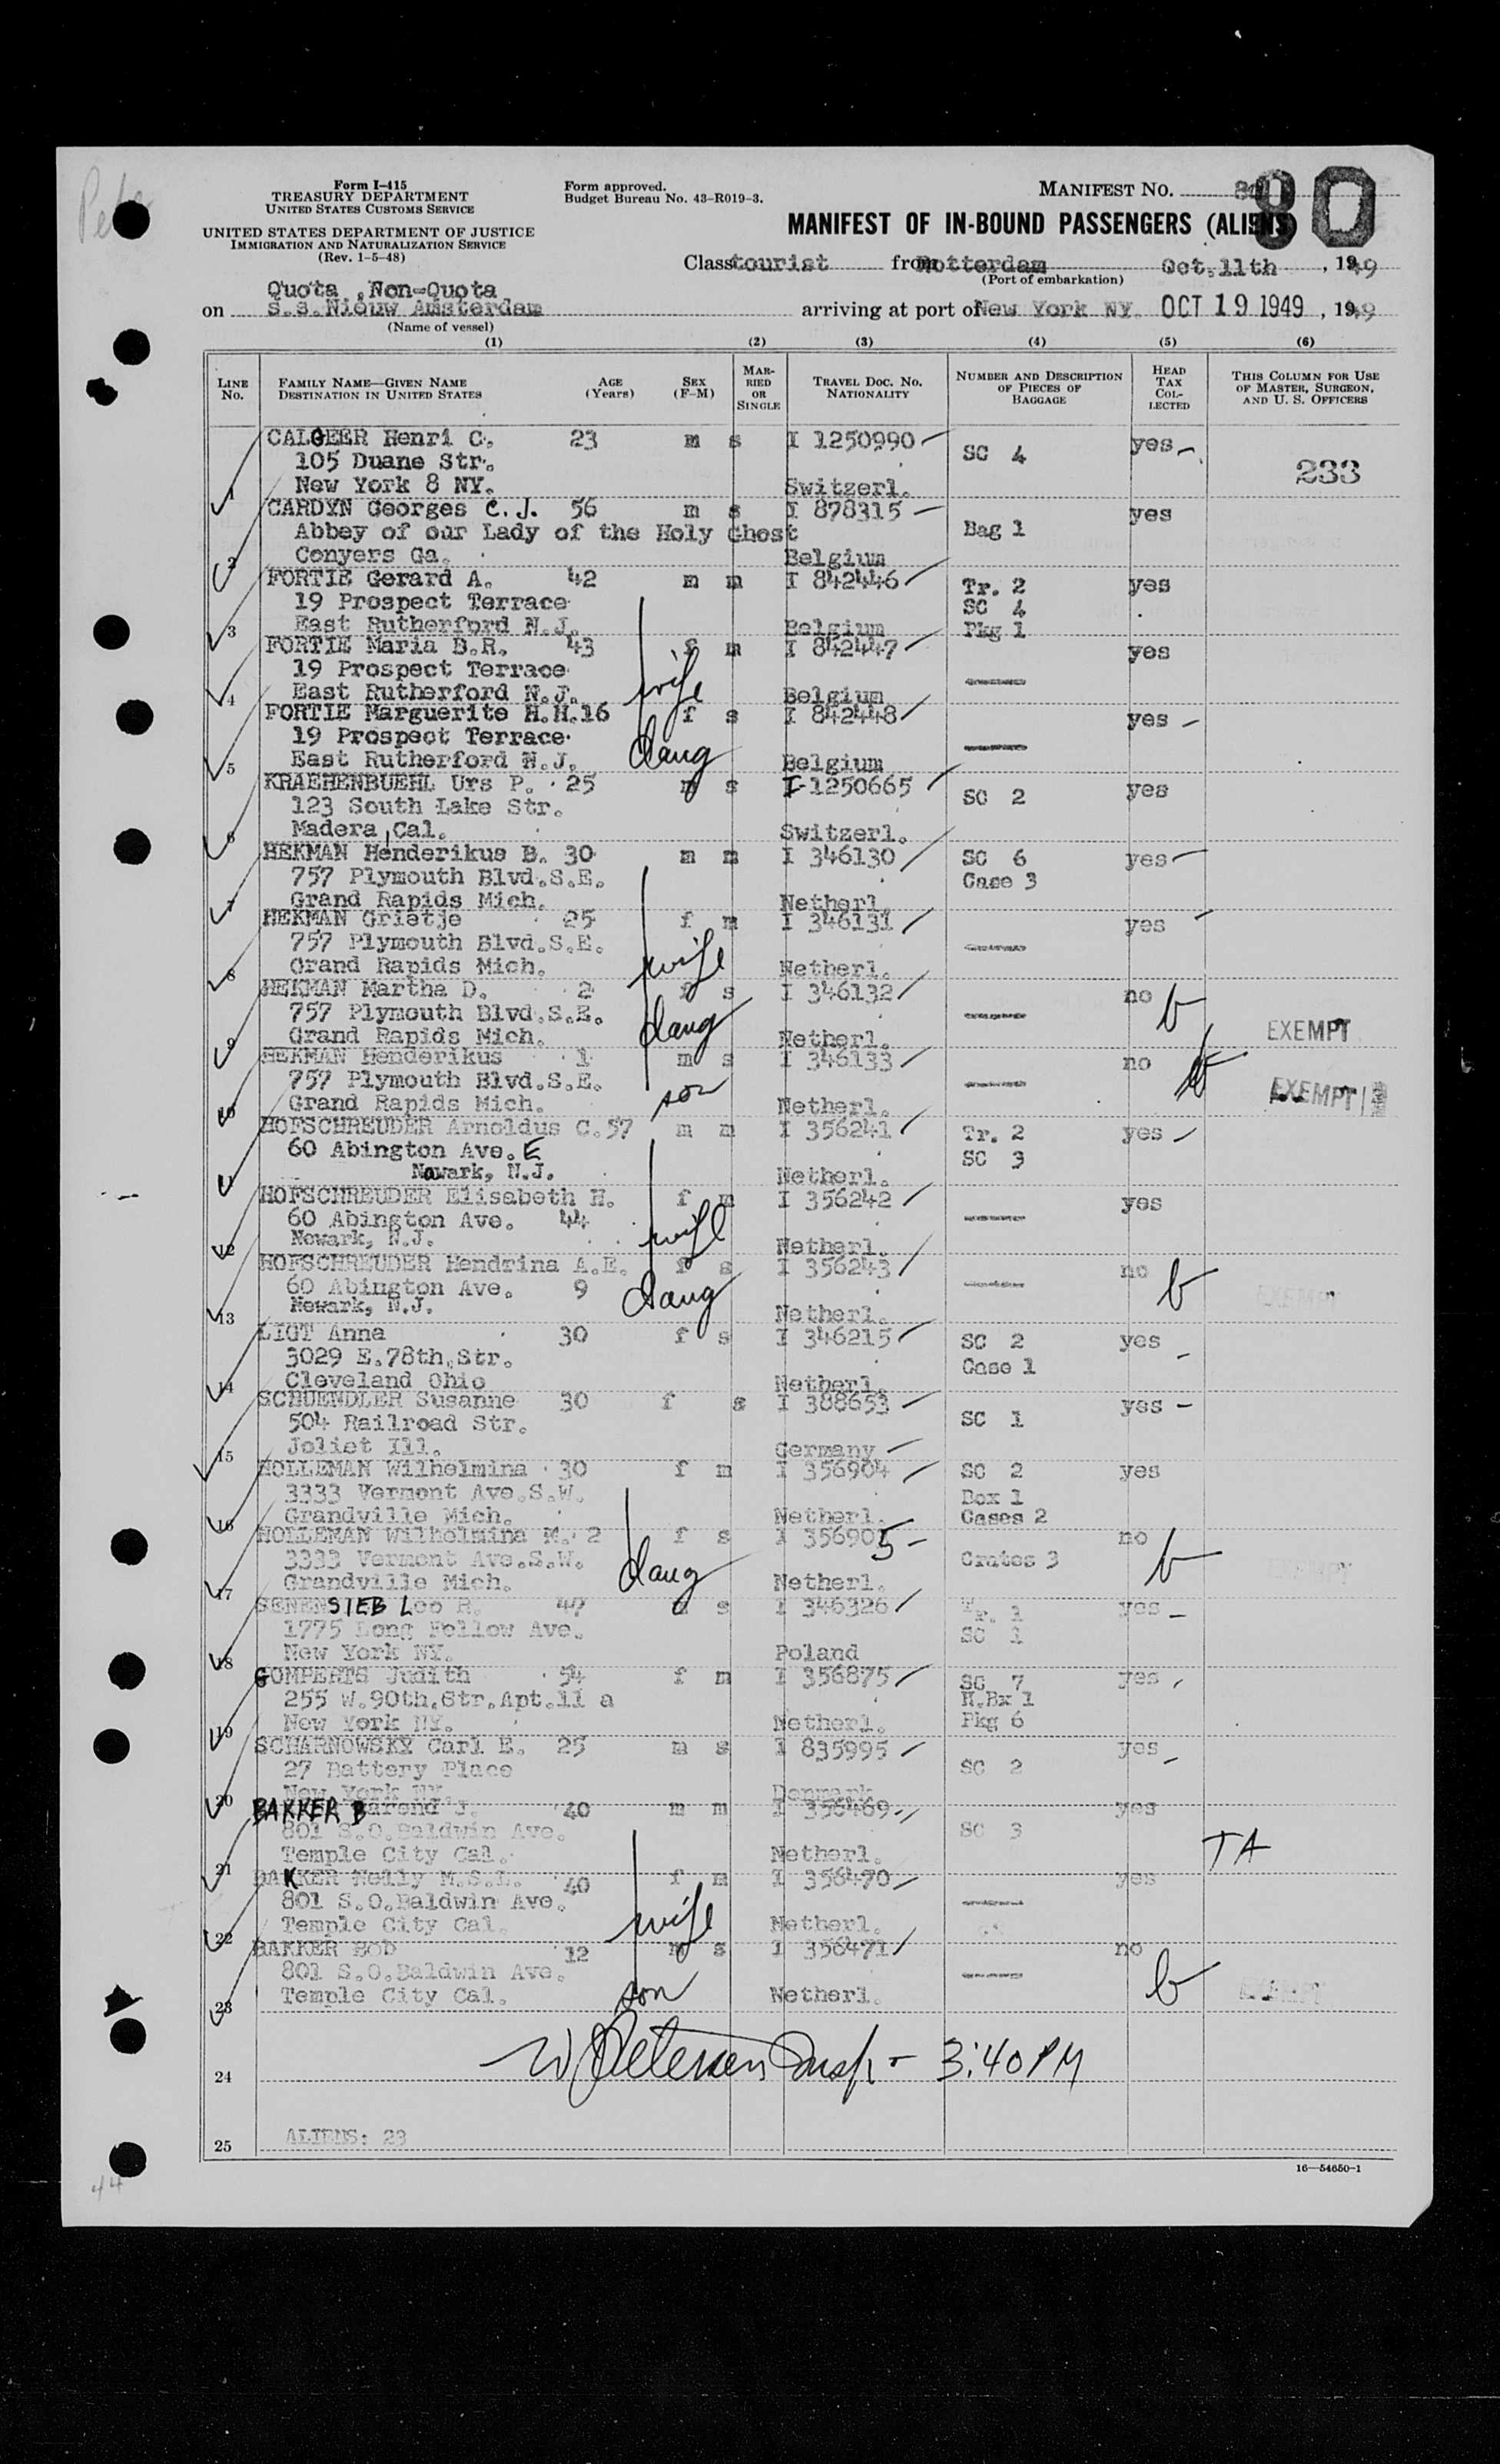 Form I-415
TREASURY DEPARTMENT
UNITED STATES CUSTOMS SERVICE
UNITED STATES DEPARTMENT OF JUSTICE
IMMIGRATION AND NATURALIZATION SERVICE
(Rev. 1-5-48)
Form approved.
Budget Bureau No. 43-R019-3.
MANIFEST NO. 80
MANIFEST OF IN-BOUND PASSENGERS (ALIENS)
Class tourist from Rotterdam Oct.11th, 1949
(Port of embarkation)
Quota , Non-Quota
on s.s.Nieuw Amsterdam arriving at port of New York NY. OCT 19 1949, 1949
(Name of vessel)
(1) (2) (3) (4) (5) (6)
LINE No. FAMILY NAME—GIVEN NAME DESTINATION IN UNITED STATES AGE (Years) SEX (F-M) MARRIED OR SINGLE TRAVEL DOC. No. NATIONALITY NUMBER AND DESCRIPTION OF PIECES OF BAGGAGE HEAD TAX COLLECTED THIS COLUMN FOR USE OF MASTER, SURGEON, AND U. S. OFFICERS
CALGEER Henri C. 23 m s I 1250990 yes
105 Duane Str. SC 4 233
1 New York 8 NY. Switzerl.
CARDYN Georges C.J. 56 m s I 878315 yes
Abbey of our Lady of the Holy Ghost Bag 1
2 Conyers Ga. Belgium
FORTIE Gerard A. 42 m m I 842446 Tr. 2 yes
19 Prospect Terrace SC 4
3 East Rutherford N.J. Belgium Pkg 1
FORTIE Maria D.R. 43 f m I 842447 yes
19 Prospect Terrace
4 East Rutherford N.J. wife Belgium
FORTIE Marguerite H.H. 16 f s I 842448 yes
19 Prospect Terrace
5 East Rutherford N.J. daug Belgium
KRAEHENBUEHL Urs P. 25 m s I-1250665 yes
123 South Lake Str. SC 2
6 Madera, Cal. Switzerl.
HEKMAN Henderikus B. 30 m m I 346130 SC 6 yes
757 Plymouth Blvd.S.E. Case 3
7 Grand Rapids Mich. Netherl.
HEKMAN Grietje 25 f m I 346131 yes
757 Plymouth Blvd.S.E.
8 Grand Rapids Mich. wife Netherl.
HEKMAN Martha D. 2 f s I 346132 no
757 Plymouth Blvd.S.E. b
9 Grand Rapids Mich. daug Netherl. EXEMPT
HEKMAN Henderikus 1 m s I 346133 no
757 Plymouth Blvd.S.E. b
10 Grand Rapids Mich. son Netherl. EXEMPT
HOFSCHREUDER Arnoldus C. 57 m m I 356241 Tr. 2 yes
60 Abington Ave. E SC 3
11 Newark, N.J. Netherl.
HOFSCHREUDER Elisabeth H. f m I 356242 yes
60 Abington Ave. 44
12 Newark, N.J. wife Netherl.
HOFSCHREUDER Hendrina A.E. f s I 356243 no
60 Abington Ave. 9 b
13 Newark, N.J. daug Netherl. EXEMPT
LIGT Anna 30 f s I 346215 SC 2 yes
3029 E.78th.Str. Case 1
14 Cleveland Ohio Netherl.
SCHUENDLER Susanne 30 f s I 388653 yes
504 Railroad Str. SC 1
15 Joliet Ill. Germany
HOLLEMAN Wilhelmina 30 f m I 356904 SC 2 yes
3333 Vermont Ave.S.W. Box 1
16 Grandville Mich. Netherl. Cases 2
HOLLEMAN Wilhelmina M. 2 f s I 356905 no
3333 Vermont Ave.S.W. Crates 3 b
17 Grandville Mich. daug Netherl.
SENENSIEB Leo R. 47 s I 346326 Tr. 1 yes
1775 Long Fellow Ave. SC 1
18 New York NY. Poland
GOMPERTS Judith 54 f m I 356875 SC 7 yes
255 W.90th.Str.Apt.11 a H.Bx 1
19 New York NY. Netherl. Pkg 6
SCHARNOWSKY Carl E. 25 m s I 835995 yes
27 Battery Place SC 2
20 New York NY. Denmark
BAKKER Barend J. 40 m m I 356469 yes
801 S.O.Baldwin Ave. SC 3
21 Temple City Cal. Netherl. TA
BAKKER Nelly M.S.L. 40 f m I 356470 yes
801 S.O.Baldwin Ave.
22 Temple City Cal. wife Netherl.
BAKKER Bob 12 m s I 356471 no
801 S.O.Baldwin Ave.
23 Temple City Cal. son Netherl. b EXEMPT
24 W Petersen Insp - 3:40 PM
25 ALIENS: 23
16—54650-1
44